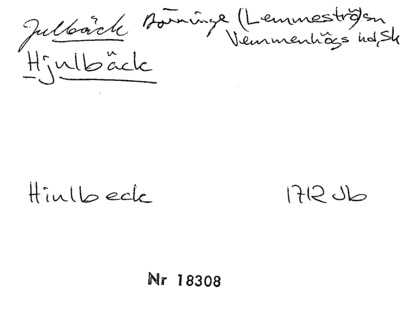 Julbäck Börringe (Lemmeströ) sn
Vemmenhögs hd, Sk
Hjulbäck
Hiulbeck 1712 Jb
Nr 18308